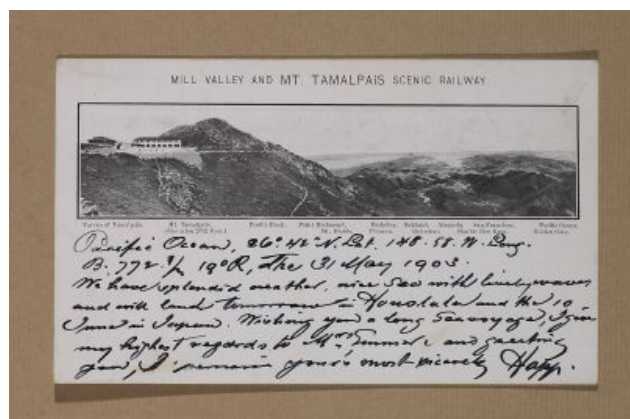 MILL VALLEY AND MT. TAMALPAIS SCENIC RAILWAY
Tavern of Tamalpais. Mt. Tamalpais. Point Richmond. Berkeley. Oakland. Alameda. San Francisco. Pacific Ocean.
Pacific Ocean, 26° 42' N. Lat. 148. 58. W. Long.
B. 772. T/ 19° R, the 31 May 1903.
We have splendid weather, nice Sea with lively waves
and will land tomorrow in Honolulu and the 10
June in Japan. Wishing you a long sea voyage, I give
my highest regards to Mrs. and greeting
you, I remain your's most sincerely Happ.